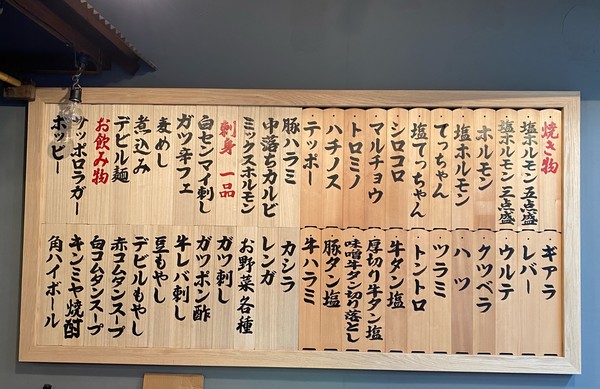 焼き物
塩ホルモン五点盛
塩ホルモン三点盛
ホルモン
塩ホルモン
てっちゃん
塩てっちゃん
シロコロ
マルチョウ
トロミノ
ハチノス
テッポー
豚ハラミ
中落ちカルビ
ミックスホルモン
刺身 一品
白センマイ刺し
ガツ辛フェ
麦めし
煮込み
デビル麺
お飲み物
サッポロラガー
ホッピー
ギアラ
レバー
ウルテ
クツベラ
ハツ
ツラミ
トントロ
牛タン塩
厚切り牛タン塩
味噌牛タン切り落とし
豚タン塩
牛ハラミ
カシラ
レンガ
お野菜各種
ガツ刺し
ガツポン酢
牛レバ刺し
豆もやし
デビルもやし
赤コムタンスープ
白コムタンスープ
キンミヤ焼酎
角ハイボール